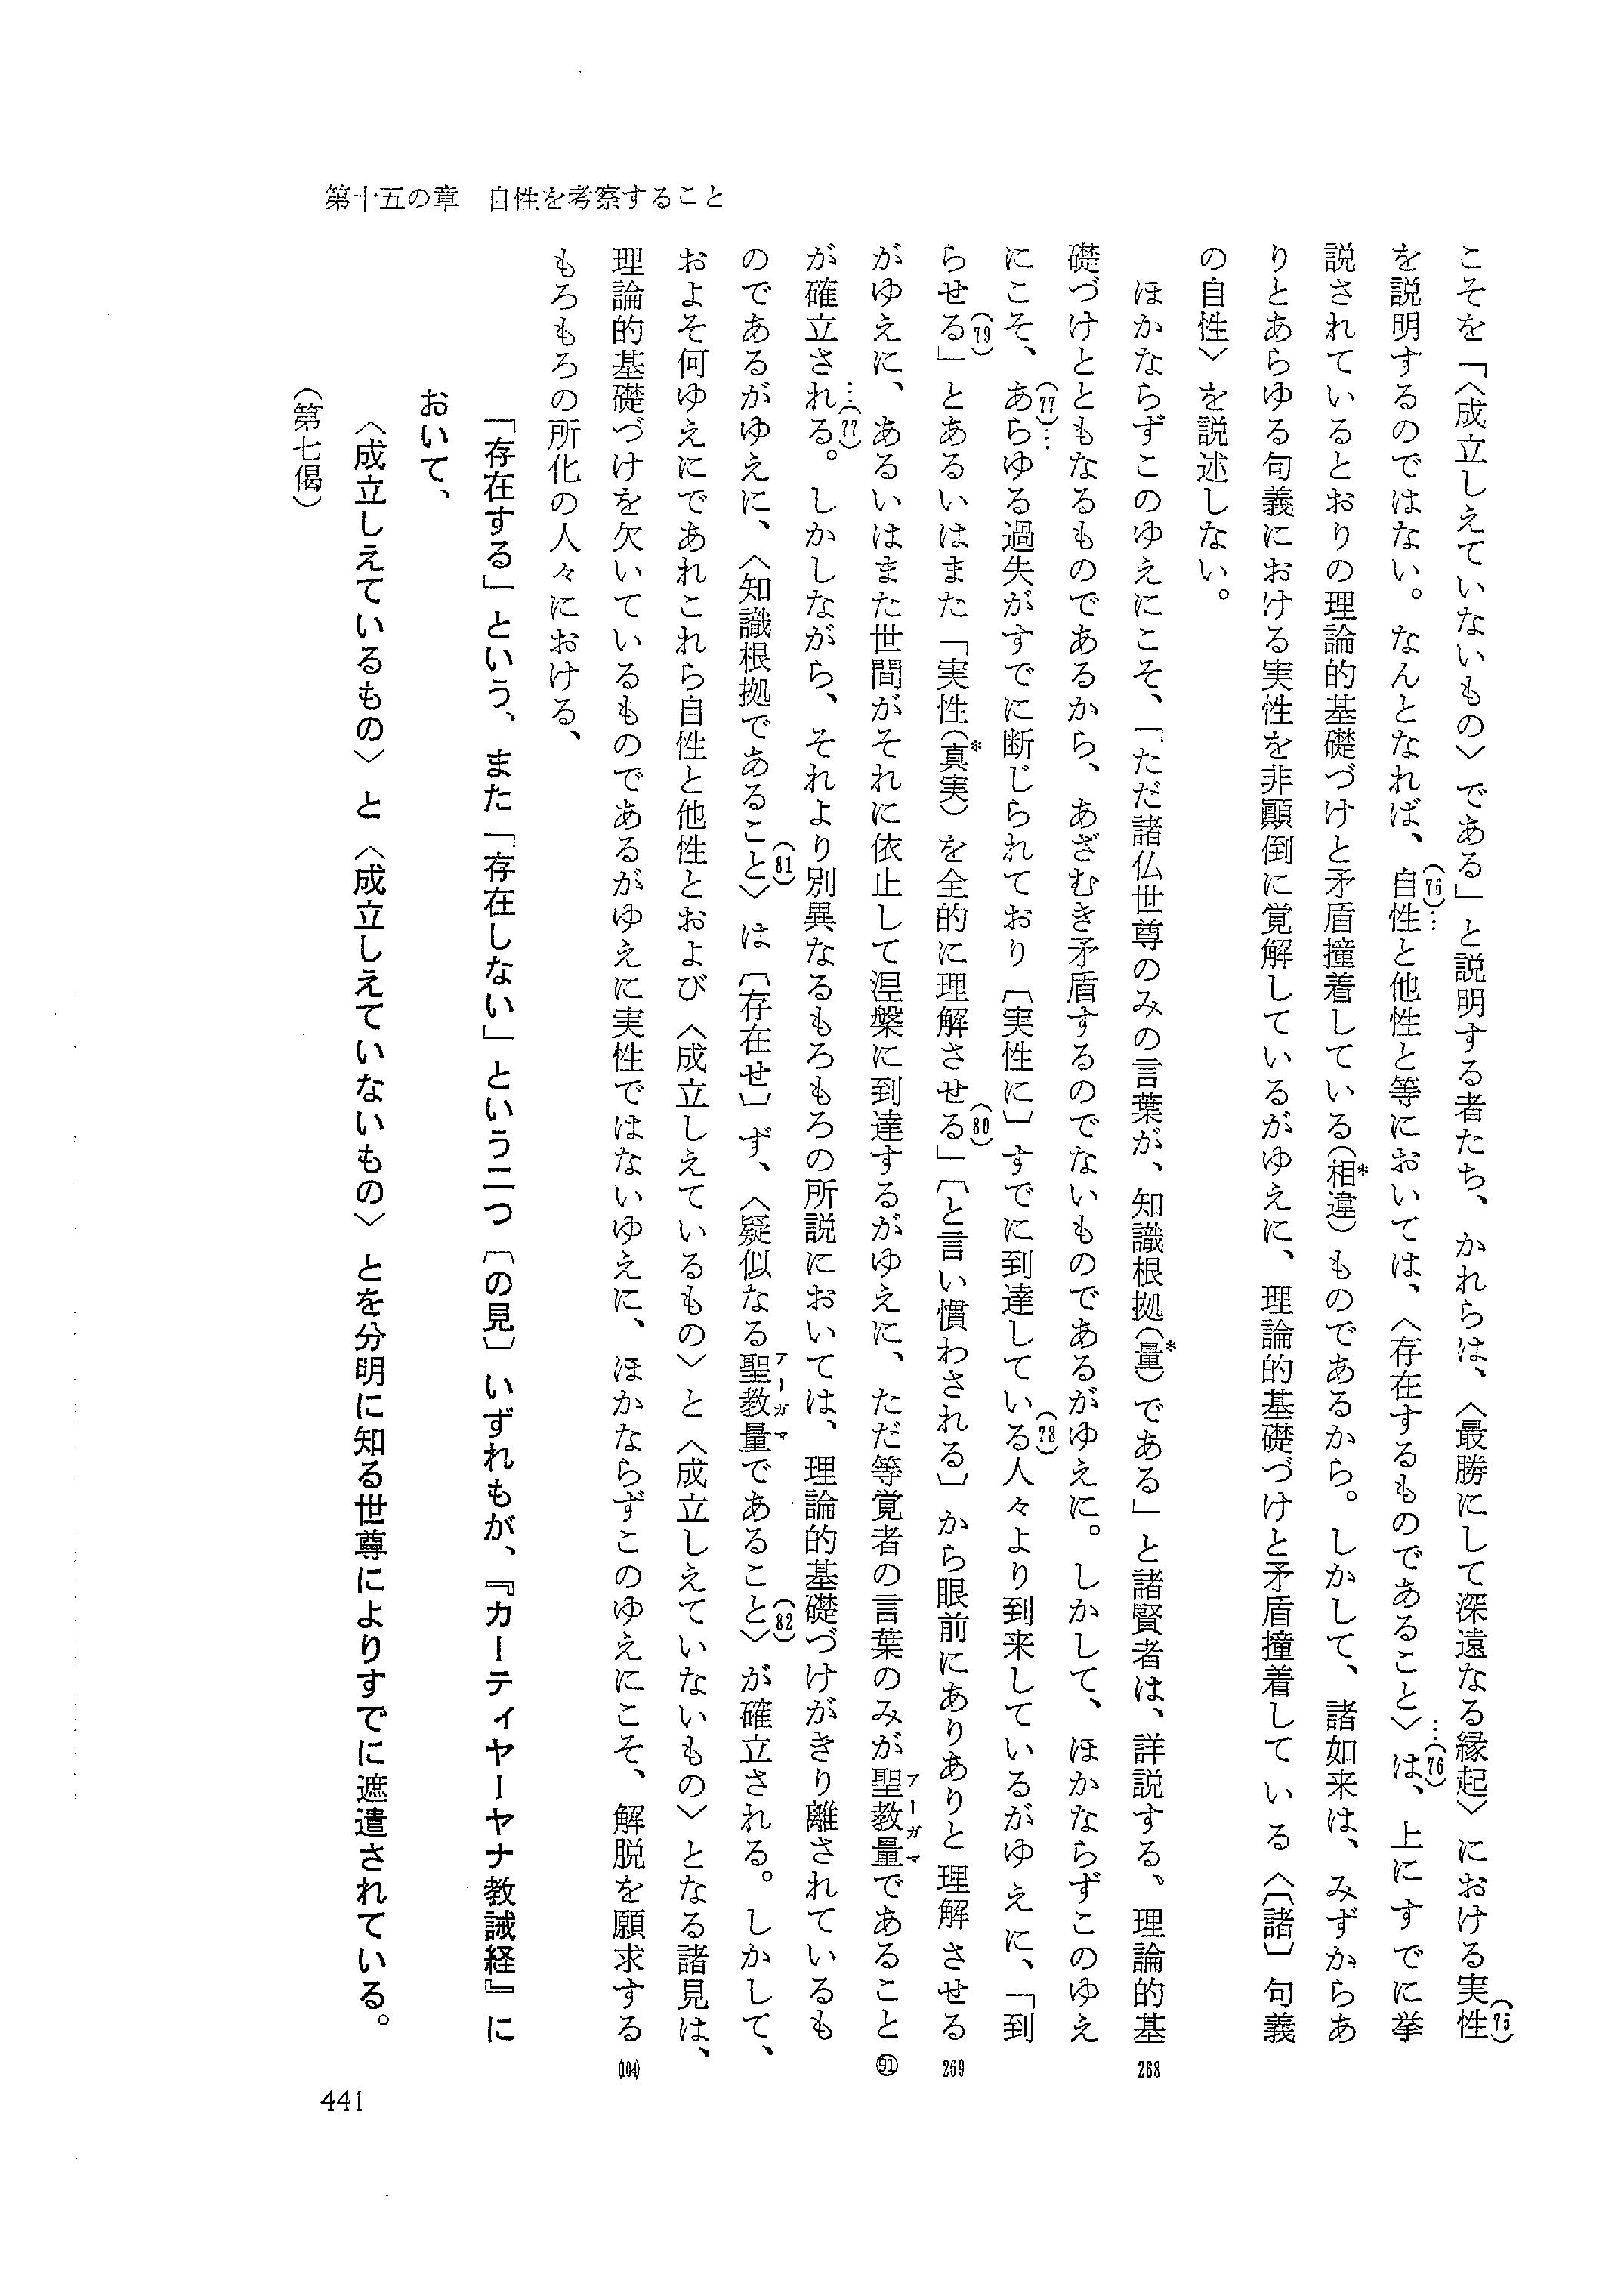 第十五の章　自性を考察すること
こそを「〈成立しえていないもの〉である」と説明する者たち、かれらは、〈最勝にして深遠なる縁起〉における実性(75)
を説明するのではない。なんとなれば、(76)…自性と他性と等においては、〈存在するものであること〉は…(76)、上にすでに挙
説されているとおりの理論的基礎づけと矛盾撞着している(相違*)ものであるから。しかして、諸如来は、みずからあ
りとあらゆる句義における実性を非顚倒に覚解しているがゆえに、理論的基礎づけと矛盾撞着している〈〔諸〕句義
の自性〉を説述しない。
ほかならずこのゆえにこそ、「ただ諸仏世尊のみの言葉が、知識根拠(量*)である」と諸賢者は、詳説する、理論的基 268
礎づけとともなるものであるから、あざむき矛盾するのでないものであるがゆえに。しかして、ほかならずこのゆえ
にこそ、(77)…あらゆる過失がすでに断じられており〔実性に〕すでに到達している(78)人々より到来しているがゆえに、「到
らせる(79)」とあるいはまた「実性(真実*)を全的に理解させる(80)」〔と言い慣わされる〕から眼前にありありと理解させる 269
がゆえに、あるいはまた世間がそれに依止して涅槃に到達するがゆえに、ただ等覚者の言葉のみが聖教量アーガマであること ㉑
が確立される…(77)。しかしながら、それより別異なるもろもろの所説においては、理論的基礎づけがきり離されているも
のであるがゆえに、〈知識根拠であること(81)〉は〔存在せ〕ず、〈疑似なる聖教量アーガマであること(82)〉が確立される。しかして、
およそ何ゆえにであれこれら自性と他性とおよび〈成立しえているもの〉と〈成立しえていないもの〉となる諸見は、
理論的基礎づけを欠いているものであるがゆえに実性ではないゆえに、ほかならずこのゆえにこそ、解脱を願求する (104)
もろもろの所化の人々における、
「存在する」という、また「存在しない」という二つ〔の見〕いずれもが、『カーティヤーヤナ教誡経』に
おいて、
〈成立しえているもの〉と〈成立しえていないもの〉とを分明に知る世尊によりすでに遮遣されている。
(第七偈)
441